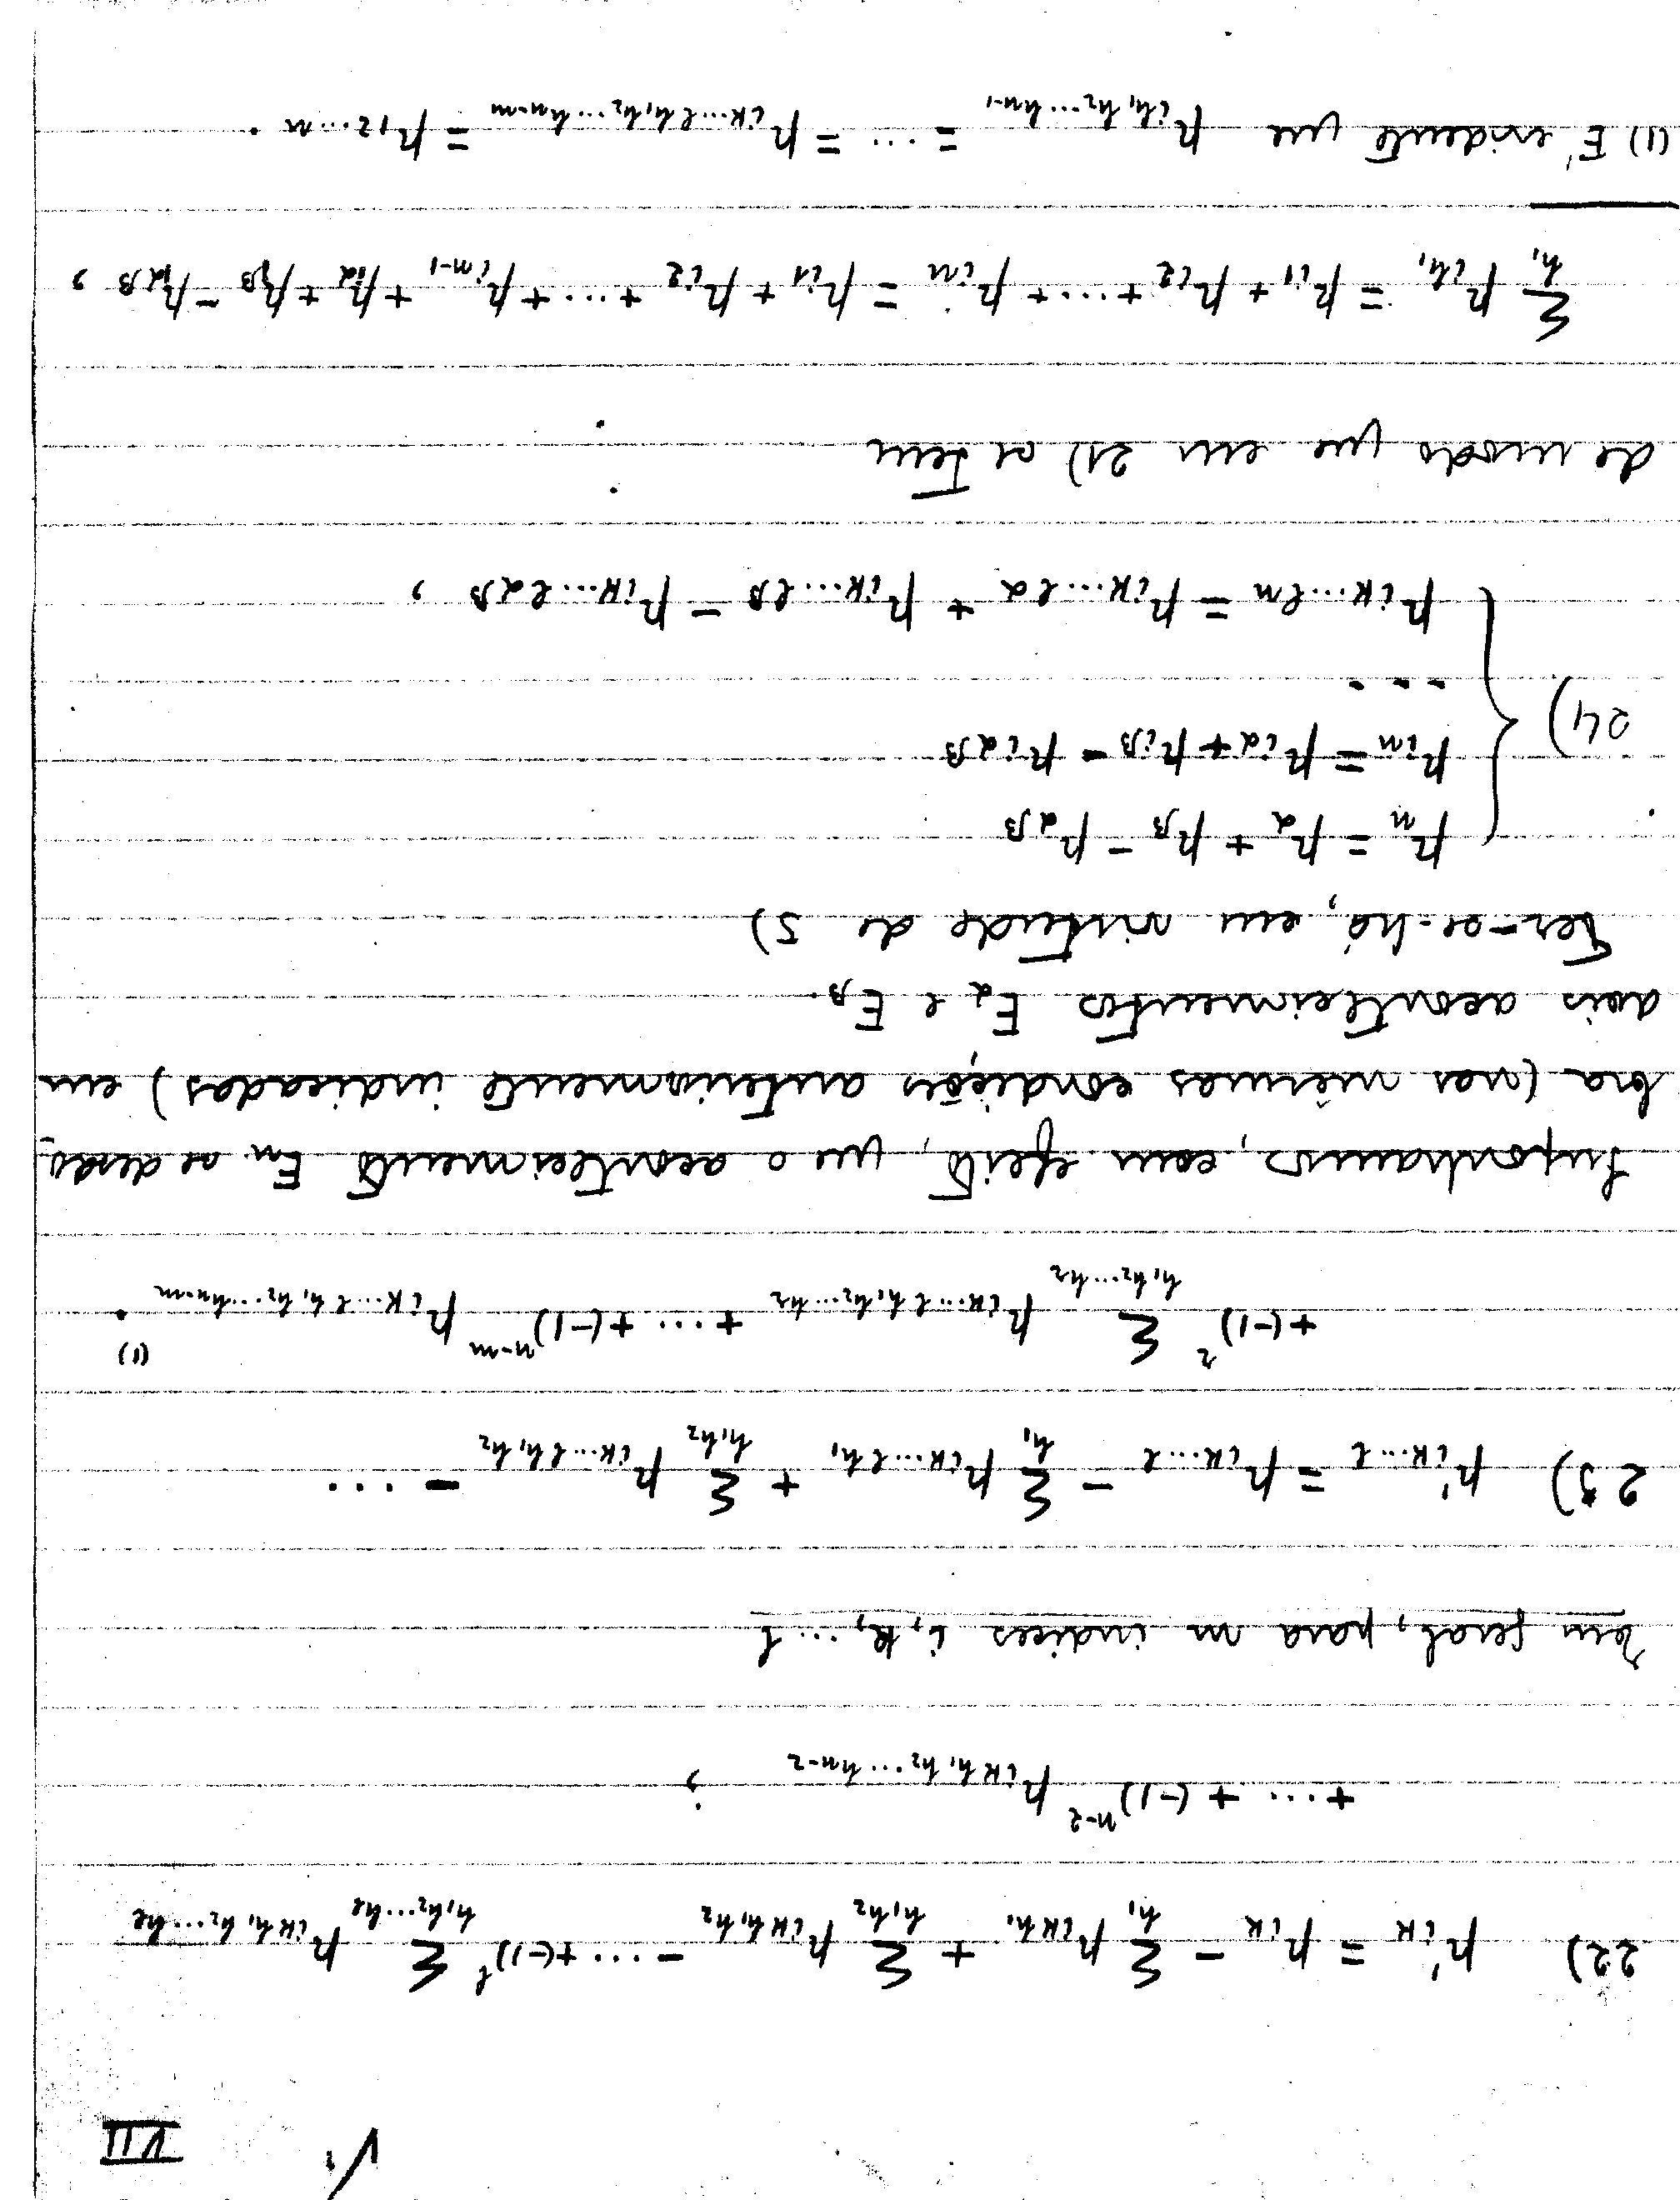 VII
22) p'_{ik} = p_{ik} - Σ_{h_1} p_{ikh_1} + Σ_{h_1h_2} p_{ikh_1h_2} - ... + (-1)^l Σ_{h_1h_2...h_l} p_{ikh_1h_2...h_l}
+ ... + (-1)^{n-2} p_{ikh_1h_2...h_{n-2}} ;
em geral, para m indices i, k, ... l
23) p'_{ik...l} = p_{ik...l} - Σ_{h_1} p_{ik...lh_1} + Σ_{h_1h_2} p_{ik...lh_1h_2} - ...
+ (-1)^r Σ_{h_1h_2...h_r} p_{ik...lh_1h_2...h_r} + ... + (-1)^{n-m} p_{ik...lh_1h_2...h_{n-m}} . (1)
Suponhamos, com efeito, que o acontecimento E_n se desdo-
bra (nas mêsmas condições anteriormente indicadas) em
dois acontecimentos E_α e E_β.
Ter-se-há, em virtude de 5)
24) { p_n = p_α + p_β - p_{αβ}
p_{in} = p_{iα} + p_{iβ} - p_{iαβ}
...
p_{ik...ln} = p_{ik...lα} + p_{ik...lβ} - p_{ik...lαβ} ,
de modo que em 21) se tem
Σ_{h_1} p_{ih_1} = p_{i1} + p_{i2} + ... + p_{in} = p_{i1} + p_{i2} + ... + p_{in-1} + p_{iα} + p_{iβ} - p_{iαβ} ,
(1) E' evidente que p_{ih_1h_2...h_{n-1}} = ... = p_{ik...lh_1h_2...h_{n-m}} = p_{12...n} .